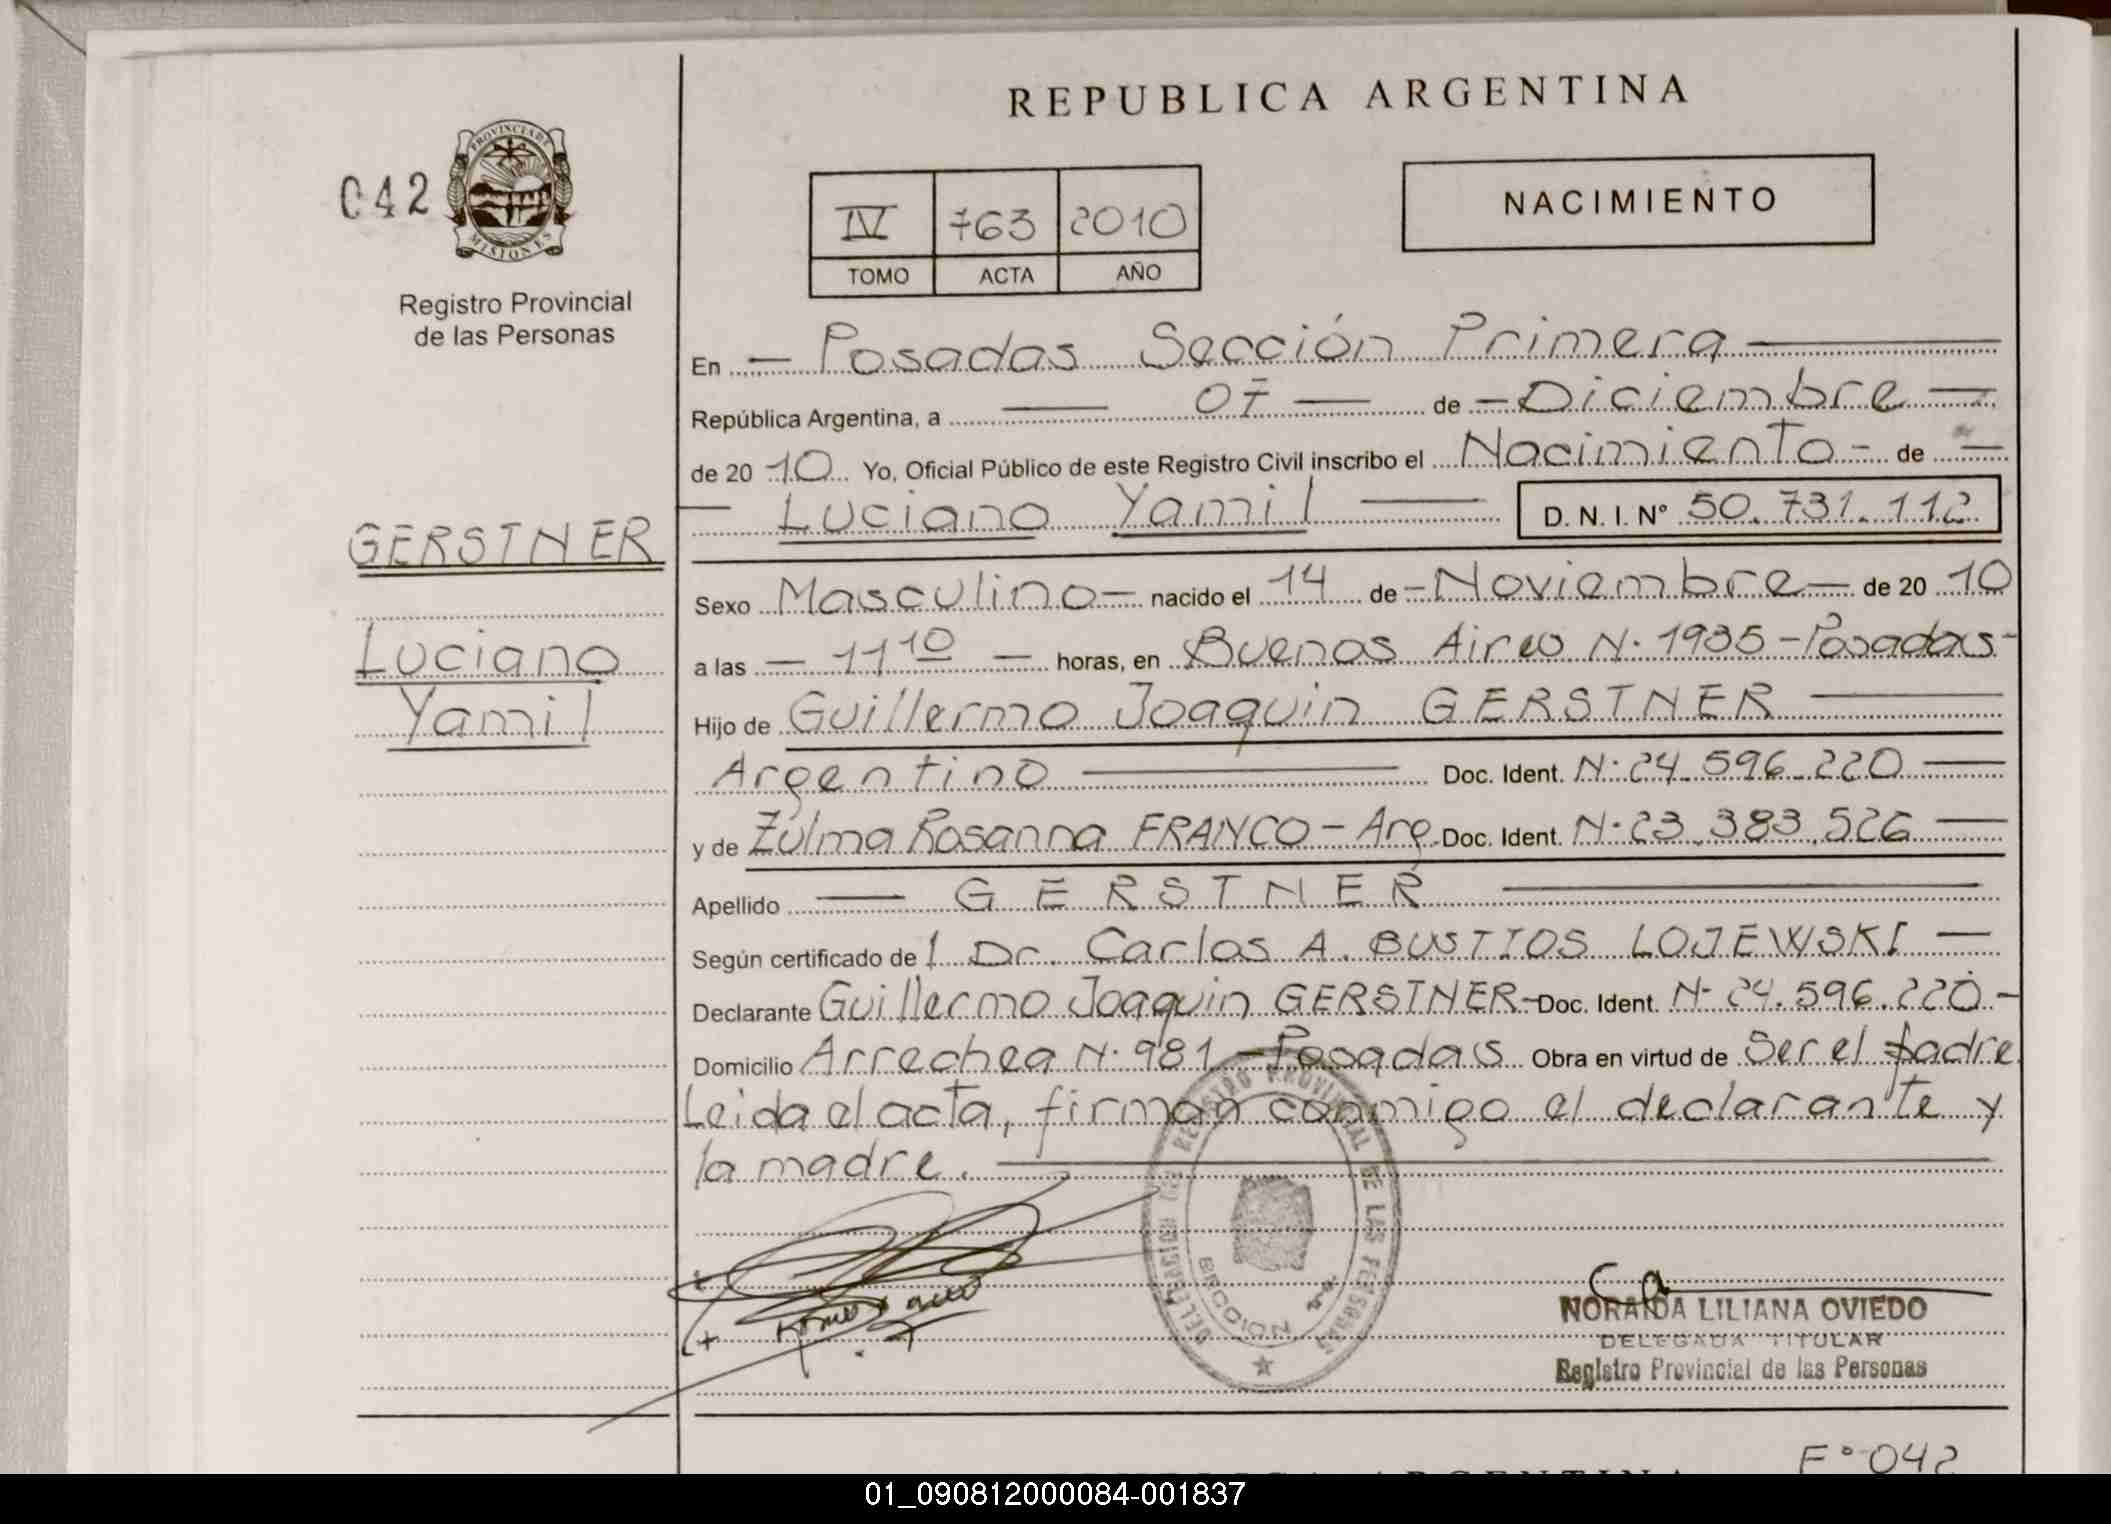 REPUBLICA ARGENTINA
042
PROVINCIA DE
MISIONES
Registro Provincial
de las Personas
IV 763 2010
TOMO ACTA AÑO
NACIMIENTO
En — Posadas Sección Primera —
República Argentina, a — 07 — de — Diciembre —
de 20 10 Yo, Oficial Público de este Registro Civil inscribo el Nacimiento - de —
— Luciano Yamil — D. N. I. Nº 50.731.112
GERSTNER
Luciano
Yamil
Sexo Masculino — nacido el 14 de - Noviembre — de 20 10
a las — 11 10 — horas, en Buenos Aires N. 1935 - Posadas -
Hijo de Guillermo Joaquin GERSTNER —
Argentino — Doc. Ident. N. 24.596.220 —
y de Zulma Rosanna FRANCO - Arg. Doc. Ident. N. 23.383.526 —
Apellido — GERSTNER —
Según certificado de l Dr. Carlos A. BUSTIOS LOJEWSKI —
Declarante Guillermo Joaquin GERSTNER - Doc. Ident. N- 24.596.220 -
Domicilio Arrechea N. 981 - Posadas Obra en virtud de Ser el padre.
Leida el acta, firman conmigo el declarante y
la madre. —
DELEGACION REGISTRO PROVINCIAL DE LAS PERSONAS
NORAIDA LILIANA OVIEDO
DELEGADA TITULAR
Registro Provincial de las Personas
Fº 042
REPUBLICA ARGENTINA
01_090812000084-001837